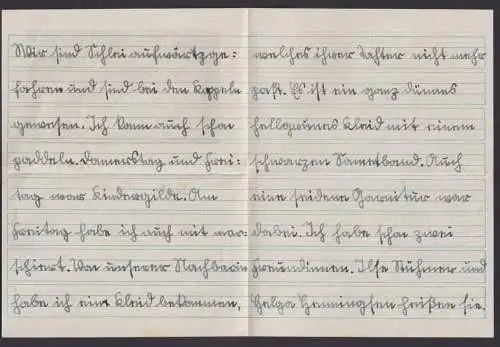 Wir sind Schlei aufwärtzge:
fahren und sind bei den Koppeln
gewesen. Ich kann auch schon
paddeln. Donnerstag und Frei:
tag war Kindergilde. Am
Freitag habe ich auch mit mar:
schiert. Von unserer Nachbarin
habe ich ein Kleid bekommen,
welches ihrer Tochter nicht mehr
paßt. Es ist ein ganz dünnes
hellgrünes Kleid mit einem
schwarzen Samtband. Auch
eine seidene Garnitur war
dabei. Ich habe schon zwei
Freundinnen. Ilse Stühmer und
Helga Henningsen heißen sie.